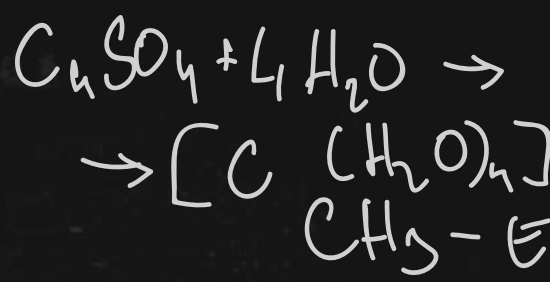 CuSO4 + 4H2O →
→ [C (H2O)4]
CH3 - E